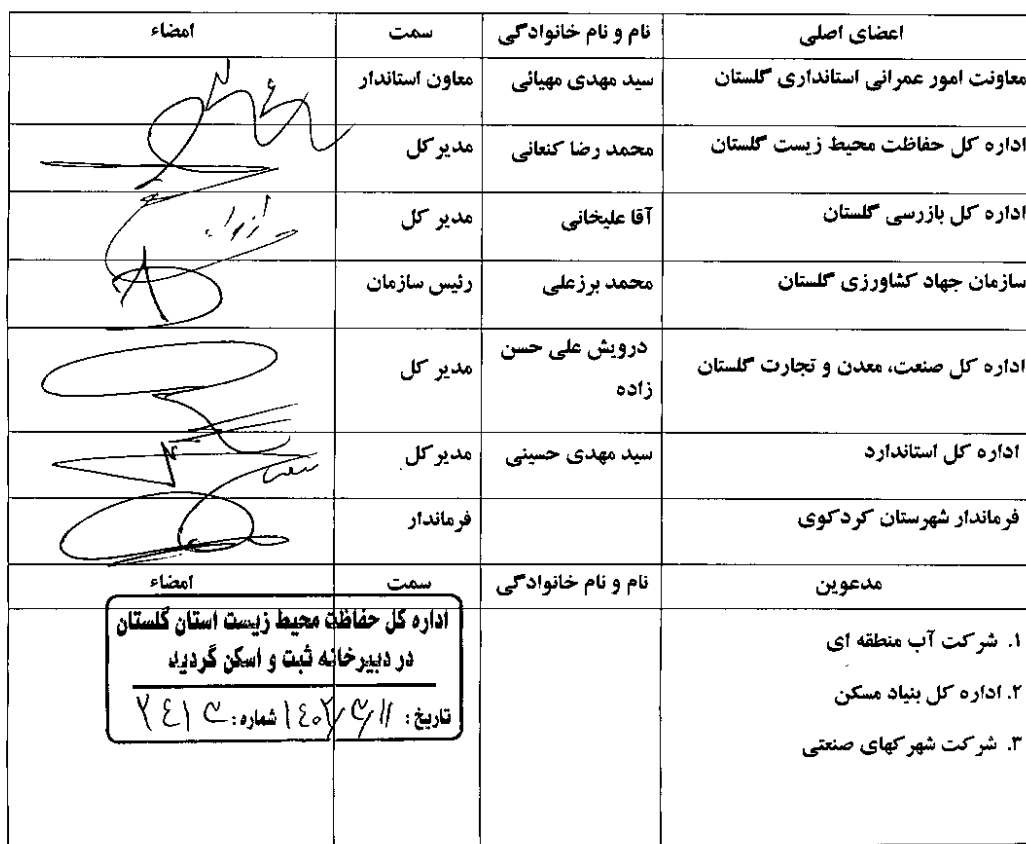 اعضای اصلی نام و نام خانوادگی سمت امضاء
معاونت امور عمرانی استانداری گلستان سید مهدی مهیائی معاون استاندار
اداره کل حفاظت محیط زیست گلستان محمد رضا کنعانی مدیرکل
اداره کل بازرسی گلستان آقا علیخانی مدیر کل
سازمان جهاد کشاورزی گلستان محمد برزعلی رئیس سازمان
اداره کل صنعت، معدن و تجارت گلستان درویش علی حسن مدیر کل
زاده
اداره کل استاندارد سید مهدی حسینی مدیرکل
فرماندار شهرستان کردکوی فرماندار
مدعوین نام و نام خانوادگی سمت امضاء
۱. شرکت آب منطقه ای
۲. اداره کل بنیاد مسکن
۳. شرکت شهرکهای صنعتی
اداره کل حفاظت محیط زیست استان گلستان
در دبیرخانه ثبت و اسکن گردید
تاریخ: شماره: